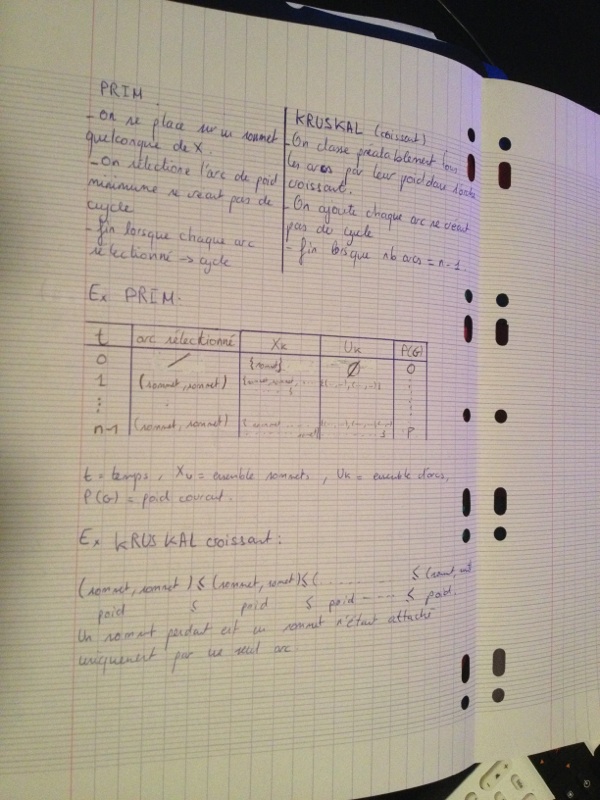 PRIM.
- On se place sur un sommet
quelconque de X.
- On sélectione l'arc de poid
minimume ne créant pas de
cycle
- fin lorsque chaque arc
sélectionné → cycle
KRUSKAL (croissant)
- On classe préalablement tous
les arcs par leur poid dans l'ordre
croissant.
- On ajoute chaque arc ne créant
pas de cycle
- fin lorsque nb arcs = n-1.
Ex PRIM.
t arc sélectionné Xk Uk P(G)
0 / {sommet} ∅ 0
1 (sommet, sommet)
n-1 (sommet, sommet) P
t = temps, Xk = ensemble sommets, Uk = ensemble d'arcs,
P(G) = poid courant.
Ex KRUSKAL croissant:
(sommet, sommet) ≤ (sommet, sommet) ≤ (.......... ≤ (sommet,
poid ≤ poid ≤ poid ---- ≤ poid.
Un sommet pendant est un sommet n'étant attaché
uniquement par un seul arc.